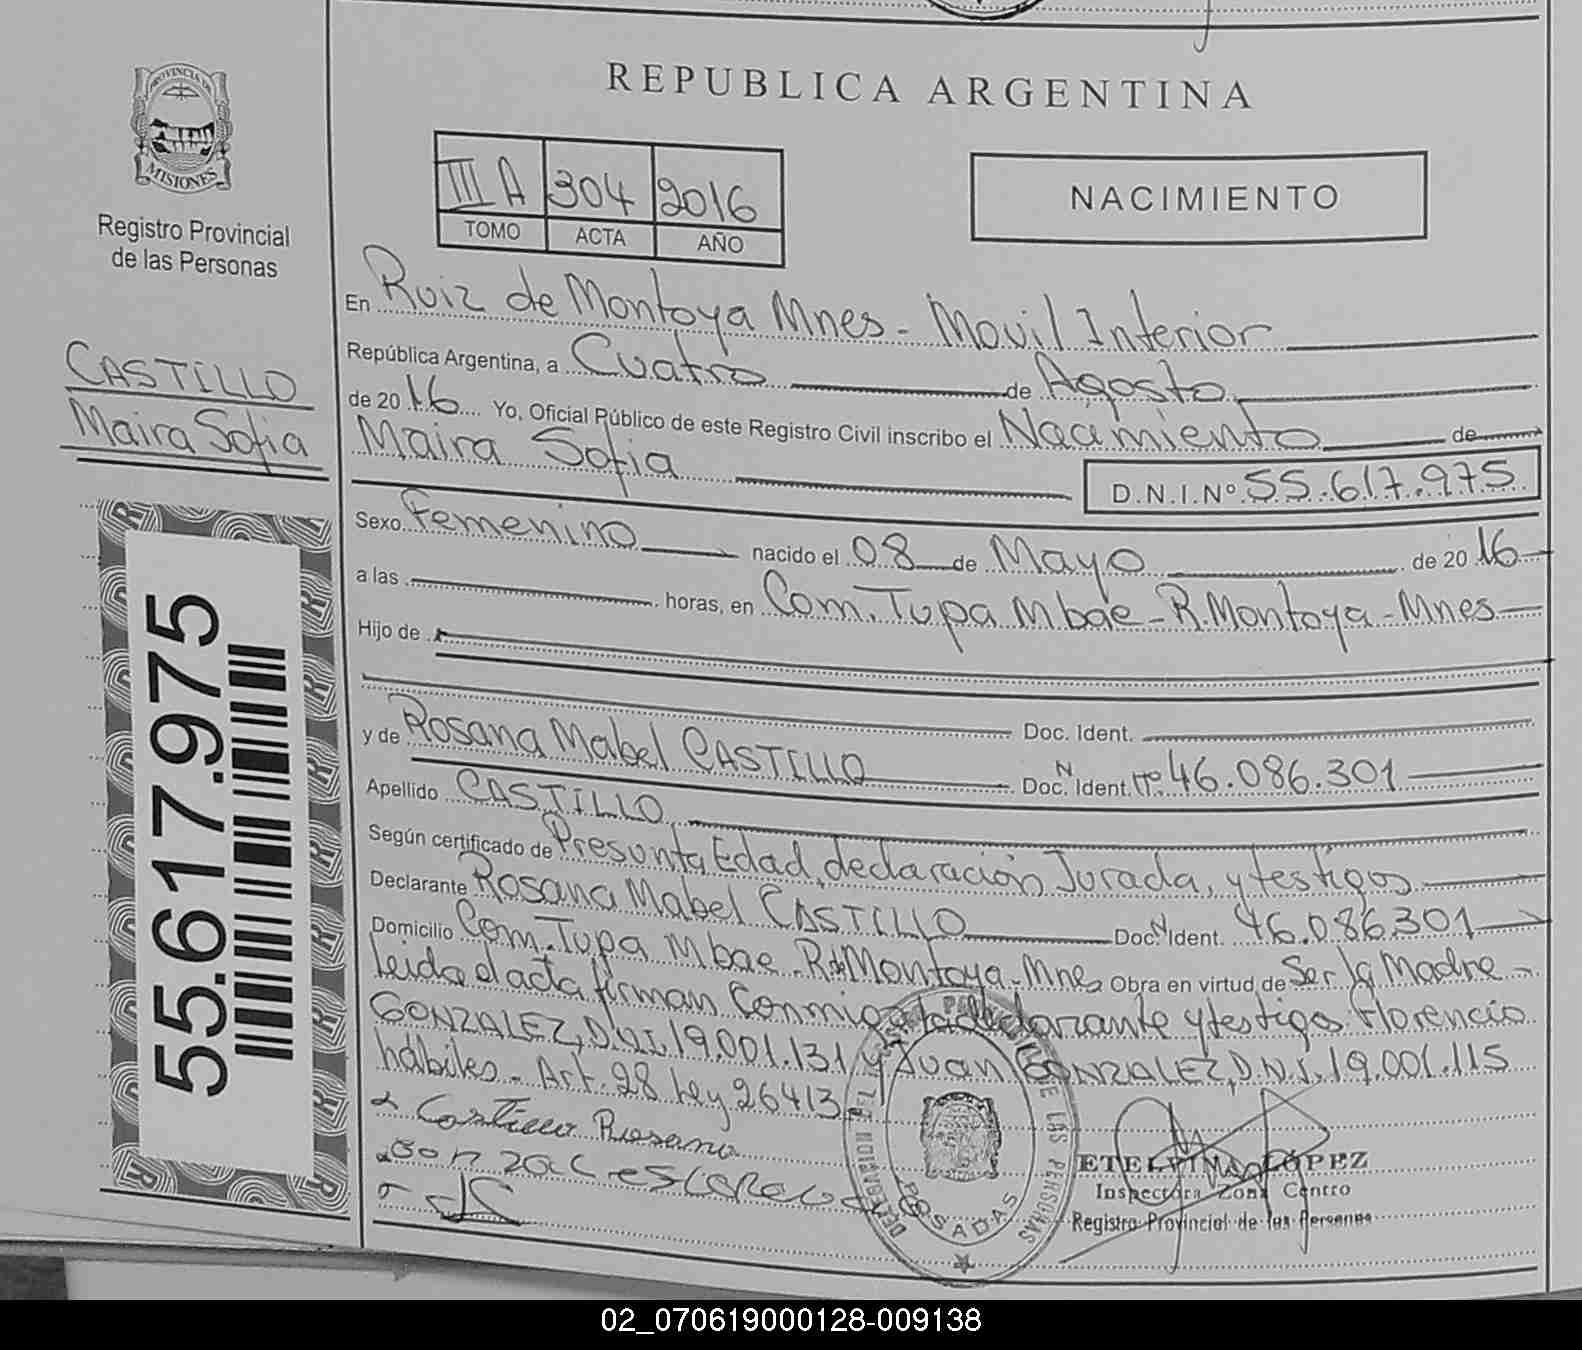 PROVINCIA DE
MISIONES
Registro Provincial
de las Personas
CASTILLO
Maira Sofia
55.617.975
REPUBLICA ARGENTINA
III A 304 2016
TOMO ACTA AÑO
NACIMIENTO
En Ruiz de Montoya Mnes - Movil Interior
República Argentina, a Cuatro de Agosto
de 20 16 Yo, Oficial Público de este Registro Civil inscribo el Nacimiento de
Maira Sofia D.N.I.Nº 55.617.975
Sexo Femenino nacido el 08 de Mayo de 20 16
a las horas, en Com. Tupa Mbae - R. Montoya - Mnes
Hijo de
Doc. Ident.
y de Rosana Mabel CASTILLO Doc. N Ident. Nº 46.086.301
Apellido CASTILLO
Según certificado de Presunta Edad, declaración Jurada, y testigos
Declarante Rosana Mabel CASTILLO Doc. N Ident. 46.086.301
Domicilio Com. Tupa Mbae - R. Montoya - Mnes Obra en virtud de Ser la Madre -
leida el acta firman Conmigo la declarante y testigos Florencio
GONZALEZ, D.N.I. 19.001.131 y Juan GONZALEZ, D.N.I. 19.001.115
hábiles - Art. 28 Ley 26413 -
Castillo Rosana
DELEGACION DEL REGISTRO PROVINCIAL DE LAS PERSONAS
POSADAS
ETELVINA LÓPEZ
Inspectora Zona Centro
Registro Provincial de las Personas
02_070619000128-009138